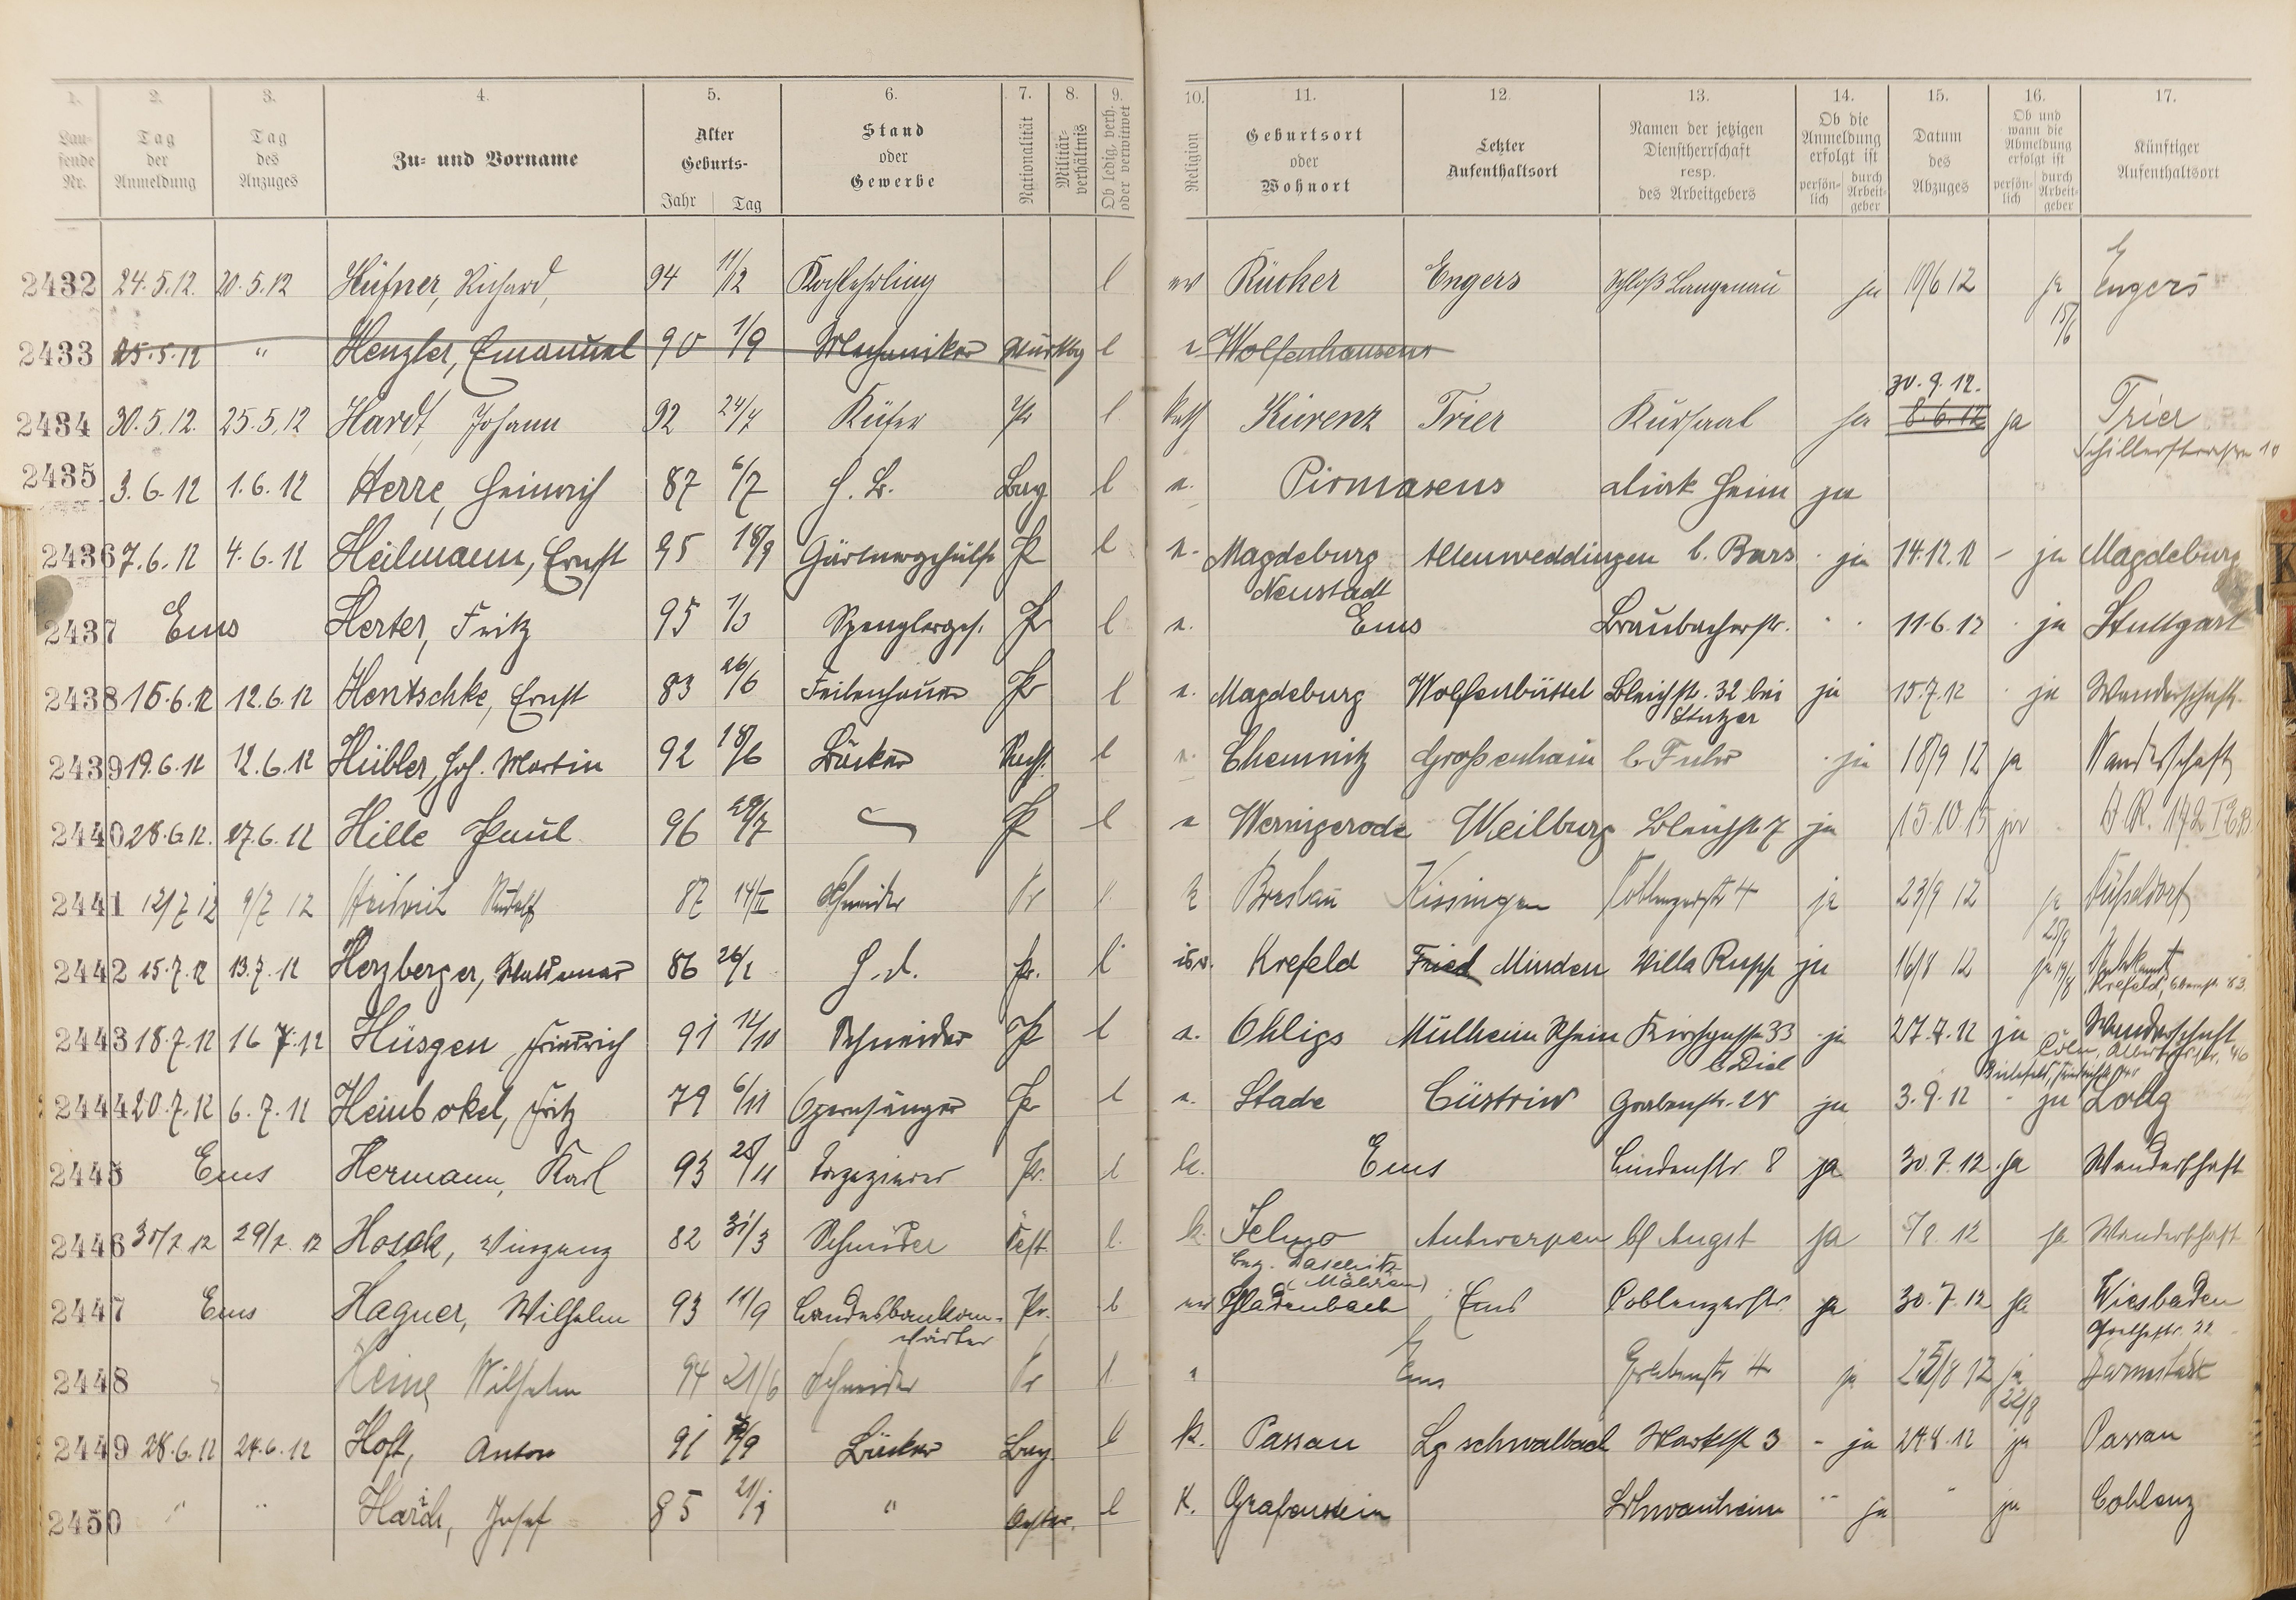 1. 2. 3. 4. 5. 6. 7. 8. 9. 10. 11. 12. 13. 14. 15. 16. 17.
Laufende Nr. Tag der Anmeldung Tag des Anzuges Zu- und Vorname Alter Geburts- Jahr Tag Stand oder Gewerbe Nationalität Militärverhältnis Ob ledig, verh. oder verwitwet Religion Geburtsort oder Wohnort Letzter Aufenthaltsort Namen der jetzigen Dienstherrschaft resp. des Arbeitgebers Ob die Anmeldung erfolgt ist persönlich durch Arbeitgeber Datum des Abzuges Ob und wann die Abmeldung erfolgt ist persönlich durch Arbeitgeber Künftiger Aufenthaltsort
2432 24.5.12. 20.5.12 Hüfner, Richard, 94 11/12 Kochlehrling l ev Rücker Engers Schloß Langenau ja 10/6 12 ja 15/6 Engers
2433 25.5.12 " Henzler, Emanuel 90 1/9 Mechaniker l Wolfenhausen
2434 30.5.12. 25.5.12 Hardt, Johann 92 24/7 Küfer Pr l kath Kürenz Trier Kursaal ja 8.6.12 30.9.12. ja Trier
Schillerstrasse 10
2435 3.6.12 1.6.12 Herre, Heinrich 87 6/7 Bay l e. Pirmasens Heim ja
2436 7.6.12 4.6.12 Heilmann, Ernst 95 18/9 Gärtnergehülfe Pr l e. Magdeburg Neustadt Altenweddingen b. Bars ja 14.12.12 - ja Magdeburg
2437 Ems Herter, Fritz 95 1/3 Spenglerges. Pr l e. Ems Braubacherstr. 11.6.12 ja Stuttgart
2438 15.6.12 12.6.12 Hentschke, Ernst 83 26/6 Feilenhauer Pr l e. Magdeburg Wolfenbüttel Bleichstr. 32 bei Stutzer ja 15.7.12 ja Wanderschaft.
2439 19.6.12 12.6.12 Hübler, Joh. Martin 92 18/6 Bäcker Sachs. l e. Chemnitz Großenhain b. Fuhr ja 18/9 12 ja Wanderschaft
2440 28.6.12. 27.6.12 Hille Paul 96 29/7 Pr l e Wernigerode Weilburg Bleichstr. 7 ja 15.10.15 ja J. R. 172
2441 12/7 12 9/7 12 Heidrich Rudolf 87 14/II Schneider Pr l k Breslau Kissingen Coblenzerstr. 4 ja 23/9 12 ja 25/9 Düsseldorf
2442 15.7.12 13.7.12 Herzberger, Waldemar 86 26/1 Pr. l isr. Krefeld Fried Minden Villa Rupp ja 16/8 12 ja 19/8 Unbekannt
Krefeld, 83.
2443 18.7.12 16.7.12 Hüsgen, Friedrich 91 12/10 Schneider Pr l e. Ohligs Mülheim Rhein Kirchgasse 33 b Diel ja 27.7.12 ja Wanderschaft
Cöln, 46
2444 20.7.12 6.7.12 Heinbokel, Fritz 79 6/11 Opernsänger Pr l e. Stade Cüstrin Grabenstr. 28 ja 3.9.12 - ja Bielefeld,
2445 Ems Hermann, Karl 93 28/11 Tapezierer Pr. l k. Ems Lindenstr. 8 ja 30.7.12 ja Wanderschaft
2446 30/7 12 29/7 12 Hosek, Vinzenz 82 31/3 Schneider Oest. l. k. Antwerpen bf Angst ja 5/8.12 ja Wanderschaft
(Mähren)
2447 Ems Hagner, Wilhelm 93 11/9 Landesbankanwärter Pr. l ev Gladenbach Ems Coblenzerstr. ja 30.7.12 ja Wiesbaden
Goethestr. 22
2448 Heine, Wilhelm 94 21/6 Schneider Pr l e Ems Grabenstr 4 ja 25/8 12 ja 22/8 Darmstadt
2449 28.6.12 24.6.12 Hoft, Anton 91 /9 Bäcker Bay. l k. Passau Lg schwalbach Marktstr 3 - ja 24.8.12 ja Passau
2450 " " Josef 85 21/1 " Oester. l K. Grafenstein Schwanheim ja " ja Coblenz